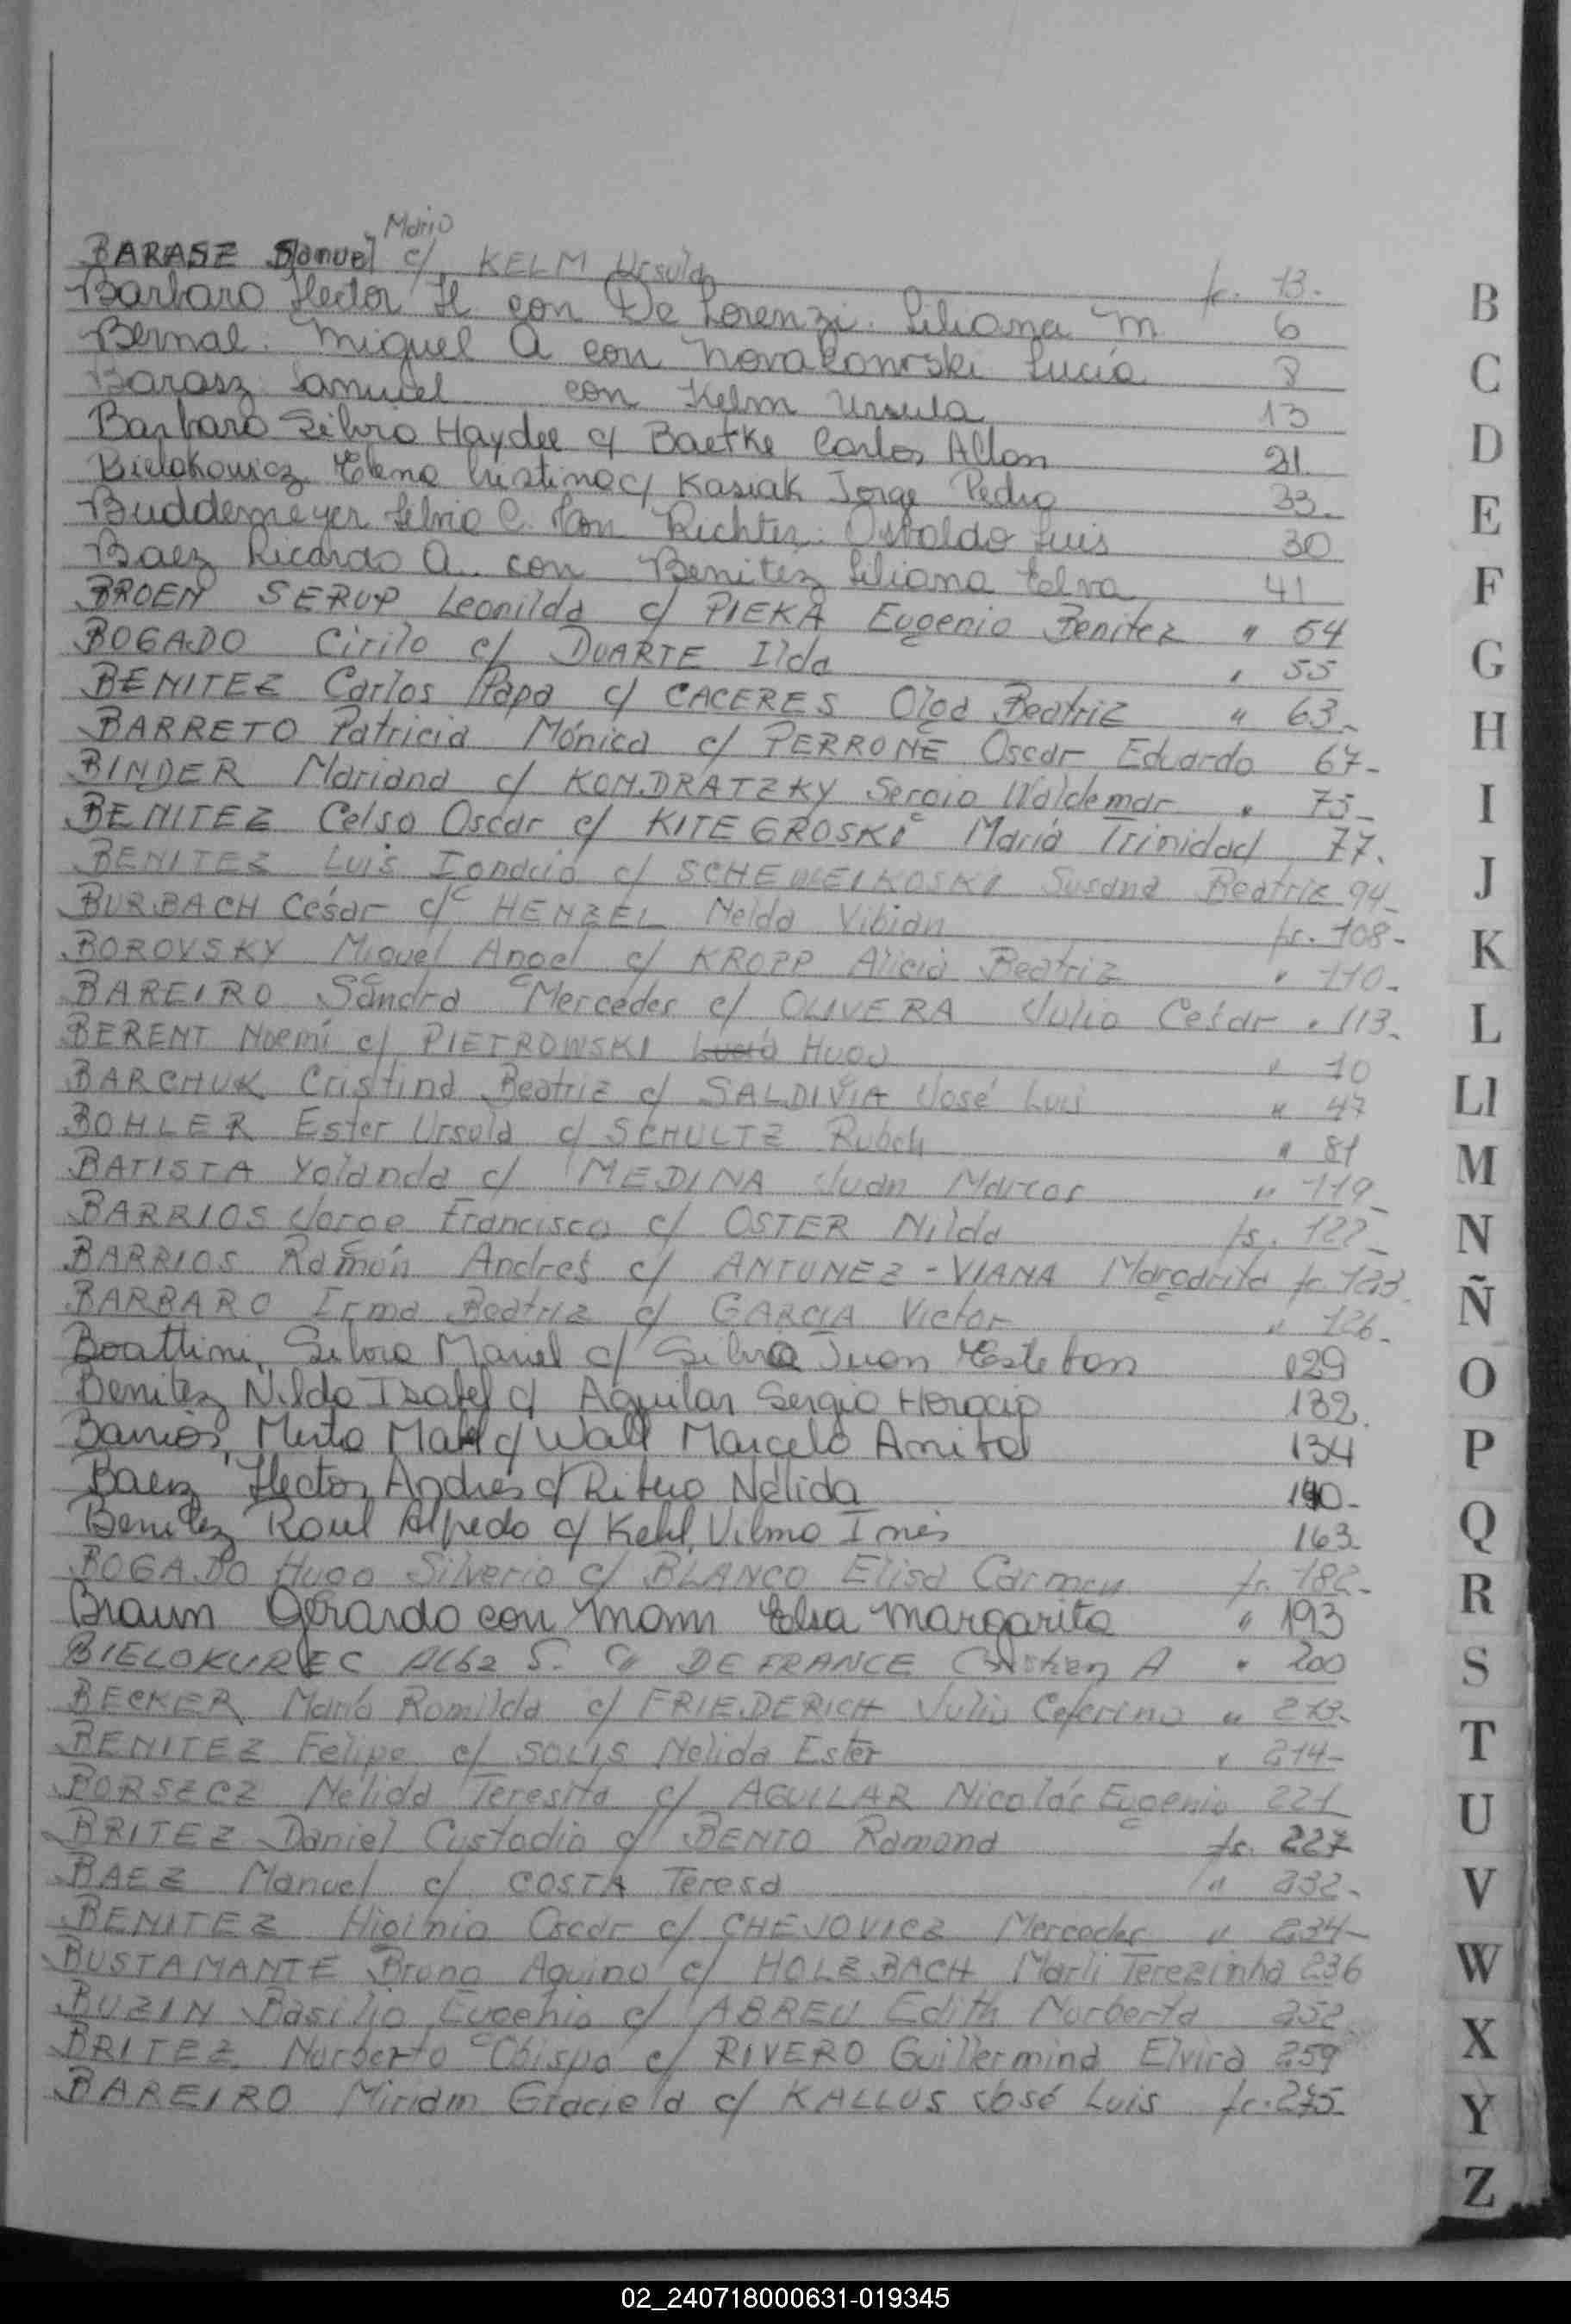 Mario
BARASZ Samuel c/ KELM Ursula fs. 13.
Barbaro Hector H. con De Lorenzi. Liliana M. 6
Bernal. Miguel A con Novakonrski Lucía 8
Barasz Samuel con Kelm Ursula 13
Barbaro Silvia Haydee c/ Baetke Carlos Allan 21.
Bielakowicz Elena Cristina c/ Kasiak Jorge Pedro 33.
Buddemeyer Silvia C. con Richter. Osvaldo Luis 30
Baez Ricardo A. con Benitez Liliana Elva 41
BROEN SERUP Leonilda c/ PIEKA Eugenio Benitez " 54
BOGADO Cirilo c/ DUARTE Ilda " 55
BENITEZ Carlos Papa c/ CACERES Olga Beatriz " 63-
BARRETO Patricia Mónica c/ PERRONE Oscar Eduardo 67-
BINDER Mariana c/ KONDRATZKY Sergio Waldemar " 75-
BENITEZ Celso Oscar c/ KITEGROSKI María Trinidad 77.
BENITEZ Luis Ignacio c/ SCHEWEIKOSKI Susana Beatriz 94-
BURBACH César c/ HENZEL Nelda Vibian fs. 108-
BOROVSKY Miguel Angel c/ KROPP Alicia Beatriz " 110-
BAREIRO Sandra Mercedes c/ OLIVERA Julio César " 113-
BERENT Noemí c/ PIETROWSKI Lucía Hugo " 10
BARCHUK Cristina Beatriz c/ SALDIVIA José Luis " 47
BOHLER Ester Ursula c/ SCHULTZ Rubén " 81
BATISTA Yolanda c/ MEDINA Juan Marcos " 119-
BARRIOS Jorge Francisco c/ OSTER Nilda fs. 122-
BARRIOS Ramón Andrés c/ ANTUNEZ-VIANA Margarita fs. 123
BARBARO Irma Beatriz c/ GARCIA Victor " 126-
Boattini, Silvia Mariel c/ Silva Juan Esteban 129
Benitez Nilda Isabel c/ Aguilar Sergio Horacio 132.
Barrios, Mirta Mabel c/ Wall Marcelo Anibal 134
Baez Hector Andrés c/ Ribero Nélida 140-
Benitez Raul Alfredo c/ Kehl, Vilma Inés 163
BOGADO Hugo Silverio c/ BLANCO Elisa Carmen fs. 182-
Braun Gerardo con Mann Elsa Margarita " 193
BIELOKUREC Alba S. c/ DE FRANCE Cristian A " 200
BECKER María Romilda c/ FRIEDERICH Julio Ceferino " 213-
BENITEZ Felipe c/ SOLIS Nelida Ester " 214-
BORSECZ Nélida Teresita c/ AGUILAR Nicolás Eugenio 221
BRITEZ Daniel Custodio c/ BENTO Ramona fs. 227
BAEZ Manuel c/ COSTA Teresa " 232-
BENITEZ Higinio Oscar c/ CHEJOVICZ Mercedes " 234-
BUSTAMANTE Bruno Aquino c/ HOLZBACH Marli Terezinha 236
BUZIN Basilio Eugenio c/ ABREU Edith Norberta 252
BRITEZ Norberto Obispo c/ RIVERO Guillermina Elvira 259
BAREIRO Miriam Graciela c/ KALLUS José Luis fs. 275-
B
C
D
E
F
G
H
I
J
K
L
Ll
M
N
Ñ
O
P
Q
R
S
T
U
V
W
X
Y
Z
02_240718000631-019345